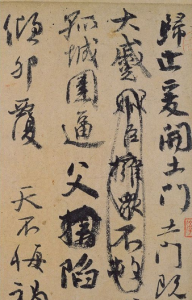 歸止爰開土門土門既
大蹙賊臣擁衆不救
孤城圍逼父陷
傾卵覆天不悔禍